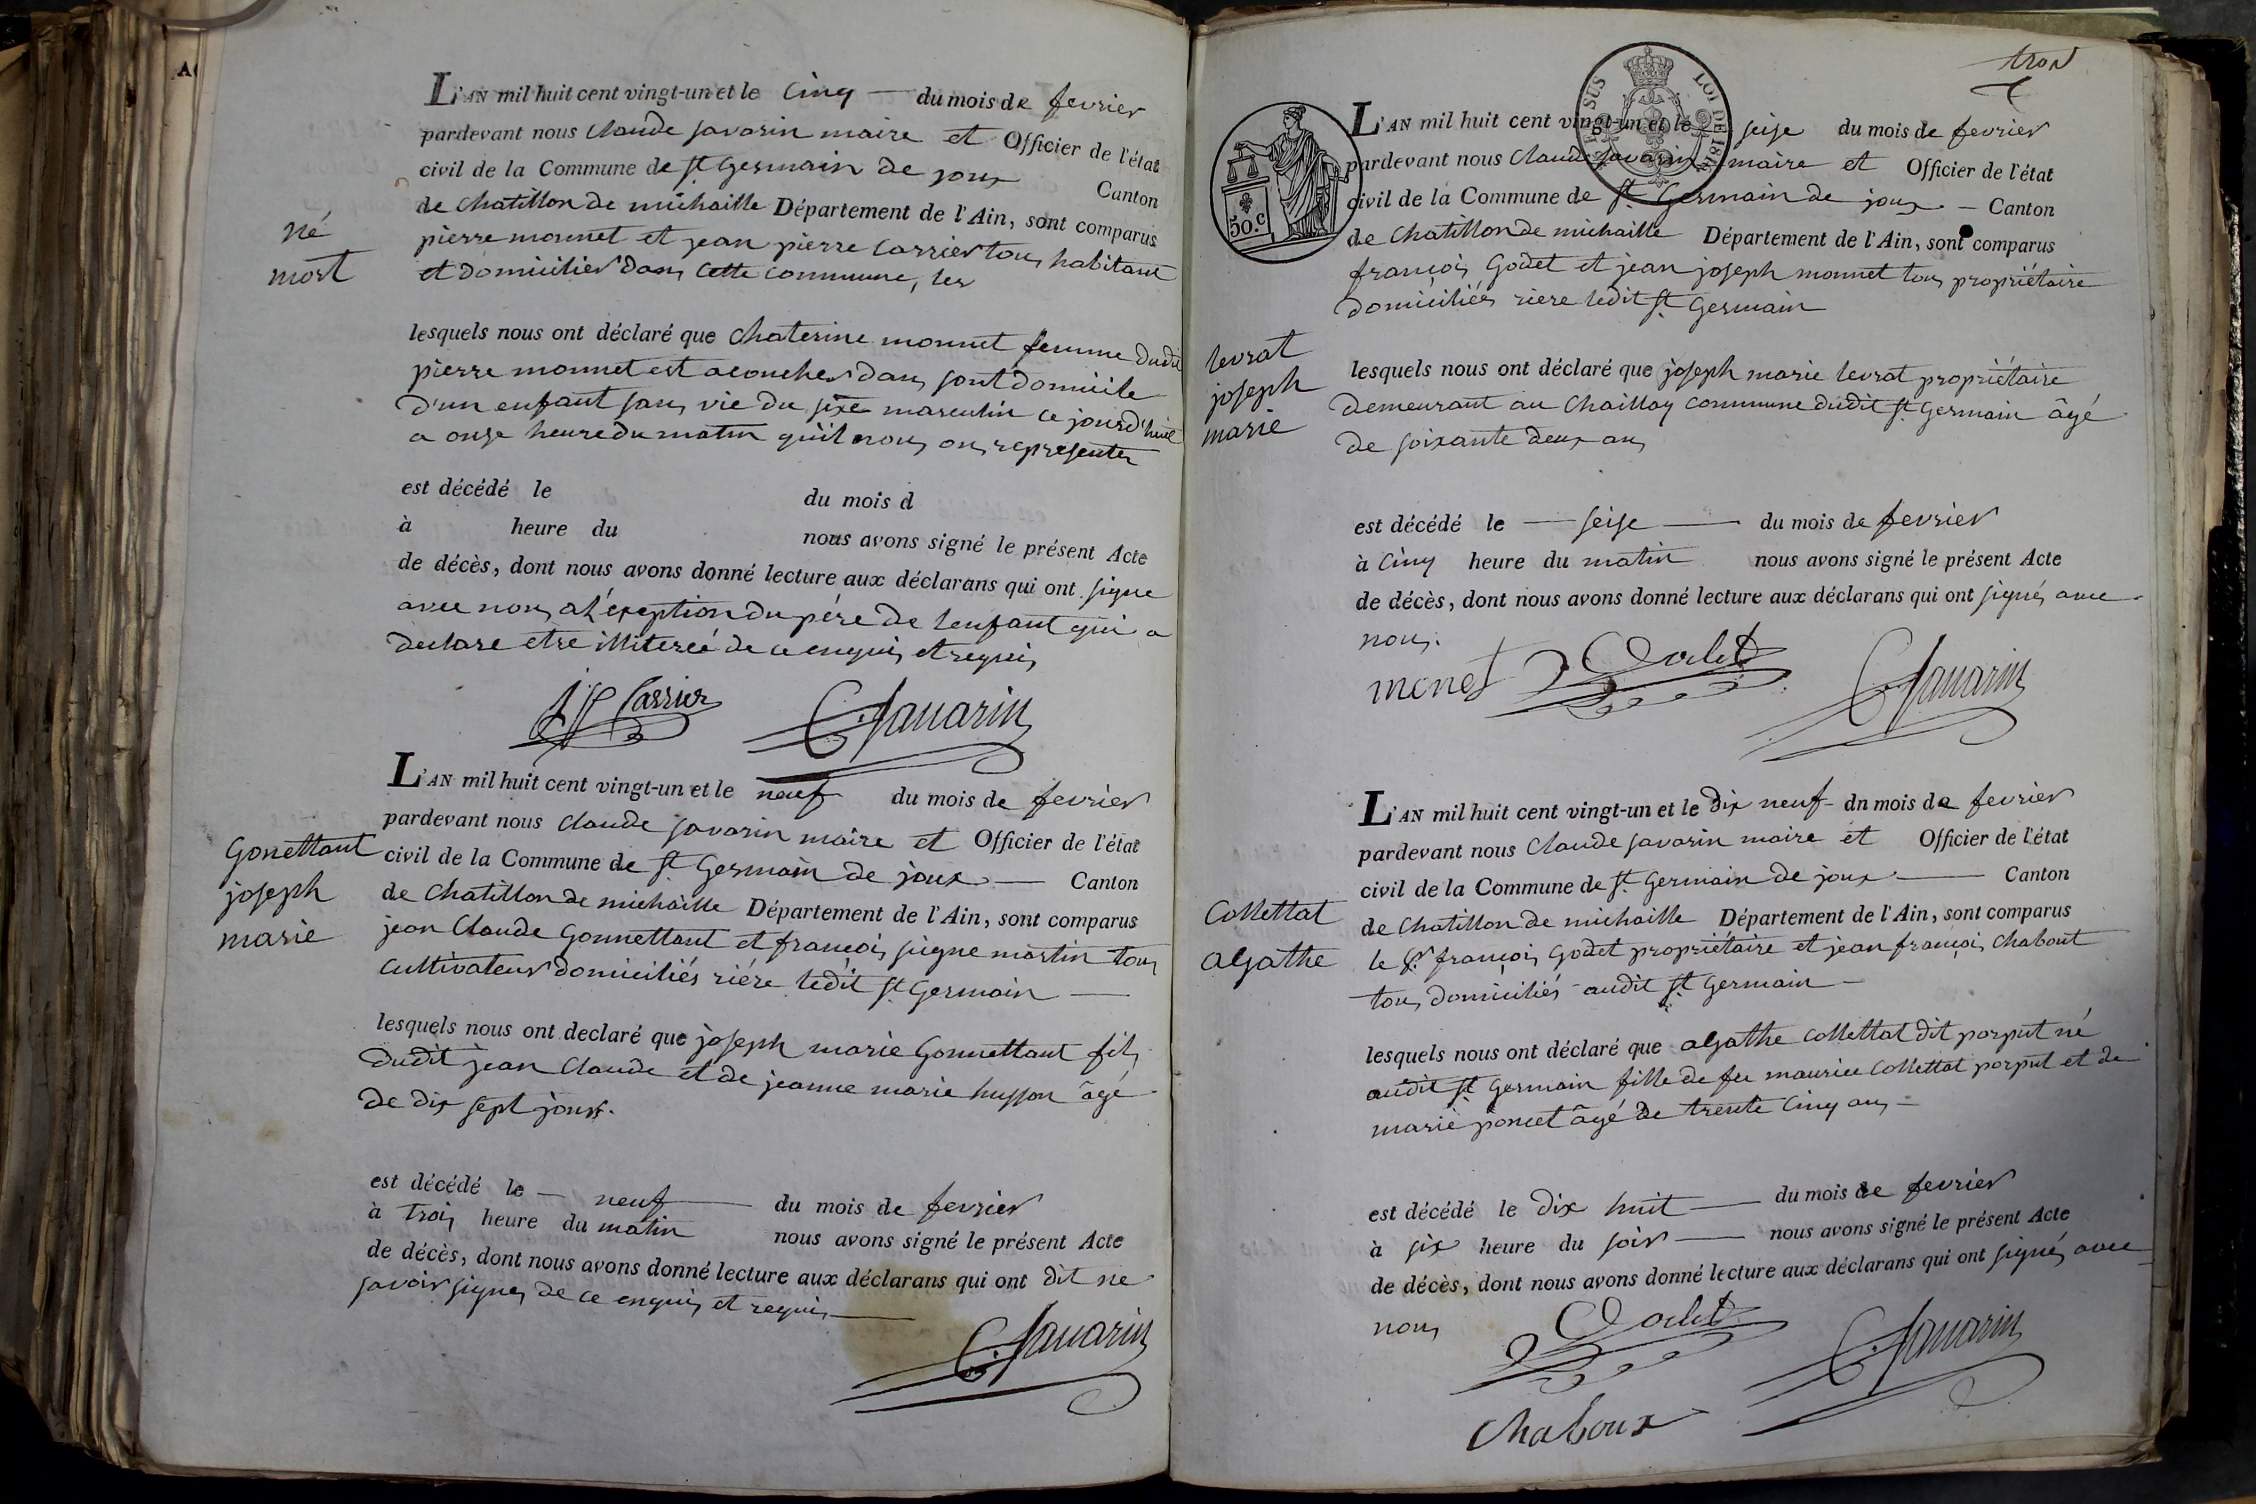 né
mort
L'AN mil huit cent vingt-un et le cinq du mois de fevrier
pardevant nous Claude savarin maire et Officier de l'état
civil de la Commune de St Germain de joux Canton
de Chatillon de michaille Département de l'Ain, sont comparus
pierre monnet et jean pierre Carrier tous habitant
et domiciliers dans cette commune, les
lesquels nous ont déclaré que Chaterine monnet femme dudit
pierre monnet est acoucher dans sont domicile
d'un enfant sans vie du sixe masculin ce jourd'huit
a onze heure du matin qu'il nous on representer
est décédé le du mois d
à heure du nous avons signé le présent Acte
de décès, dont nous avons donné lecture aux déclarans qui ont signe
avec nous a l'exeption du pére de lenfant qui a
declare etre illiteré de ce enquis et requis
JP Carrier C. Savarin
Gonettant
joseph
marie
L'AN mil huit cent vingt-un et le neuf du mois de fevrier
pardevant nous Claude savarin maire et Officier de l'état
civil de la Commune de St Germain de joux Canton
de Chatillon de michaille Département de l'Ain, sont comparus
jean Claude Gonnettant et françois signe martin tous
cultivateur domiciliés riére ledit St Germain
lesquels nous ont declaré que joseph marie Gonnettant fils
dudit jean Claude et de jeanne marie husson âgé
de dix sept jours.
est décédé le neuf du mois de fevrier
à trois heure du matin nous avons signé le présent Acte
de décès, dont nous avons donné lecture aux déclarans qui ont dit ne
savoir signer de ce enquis et requis
C. Savarin
trois
50.C
LOI DE 1816
L'AN mil huit cent vingt-un et le seise du mois de fevrier
pardevant nous Claude savarin maire et Officier de l'état
civil de la Commune de St Germain de joux Canton
de Chatillon de michaille Département de l'Ain, sont comparus
françois Godet et jean joseph monnet tous propriétaire
domiciliés riere ledit St Germain
levrat
joseph
marie
lesquels nous ont déclaré que joseph marie levrat propriétaire
demeurant au Chaillay commune dudit St Germain âgé
de soixante deux ans
est décédé le seise du mois de fevrier
à cinq heure du matin nous avons signé le présent Acte
de décès, dont nous avons donné lecture aux déclarans qui ont signés avec
nous.
monet Godet C. Savarin
L'AN mil huit cent vingt-un et le dix neuf dn mois de fevrier
pardevant nous Claude savarin maire et Officier de l'état
civil de la Commune de St Germain de joux Canton
de Chatillon de michaille Département de l'Ain, sont comparus
le Sr françois Godet propriétaire et jean françois Chabout
tous domiciliés audit St Germain
Collettat
agathe
lesquels nous ont déclaré que agathe Collettat dit porput né
audit St Germain fille de feu maurice Collettat porput et de
marie poncet âgé de trente cinq ans
est décédé le dix huit du mois de fevrier
à six heure du soir nous avons signé le présent Acte
de décès, dont nous avons donné lecture aux déclarans qui ont signés avec
nous
Godet C. Savarin
Chaboux